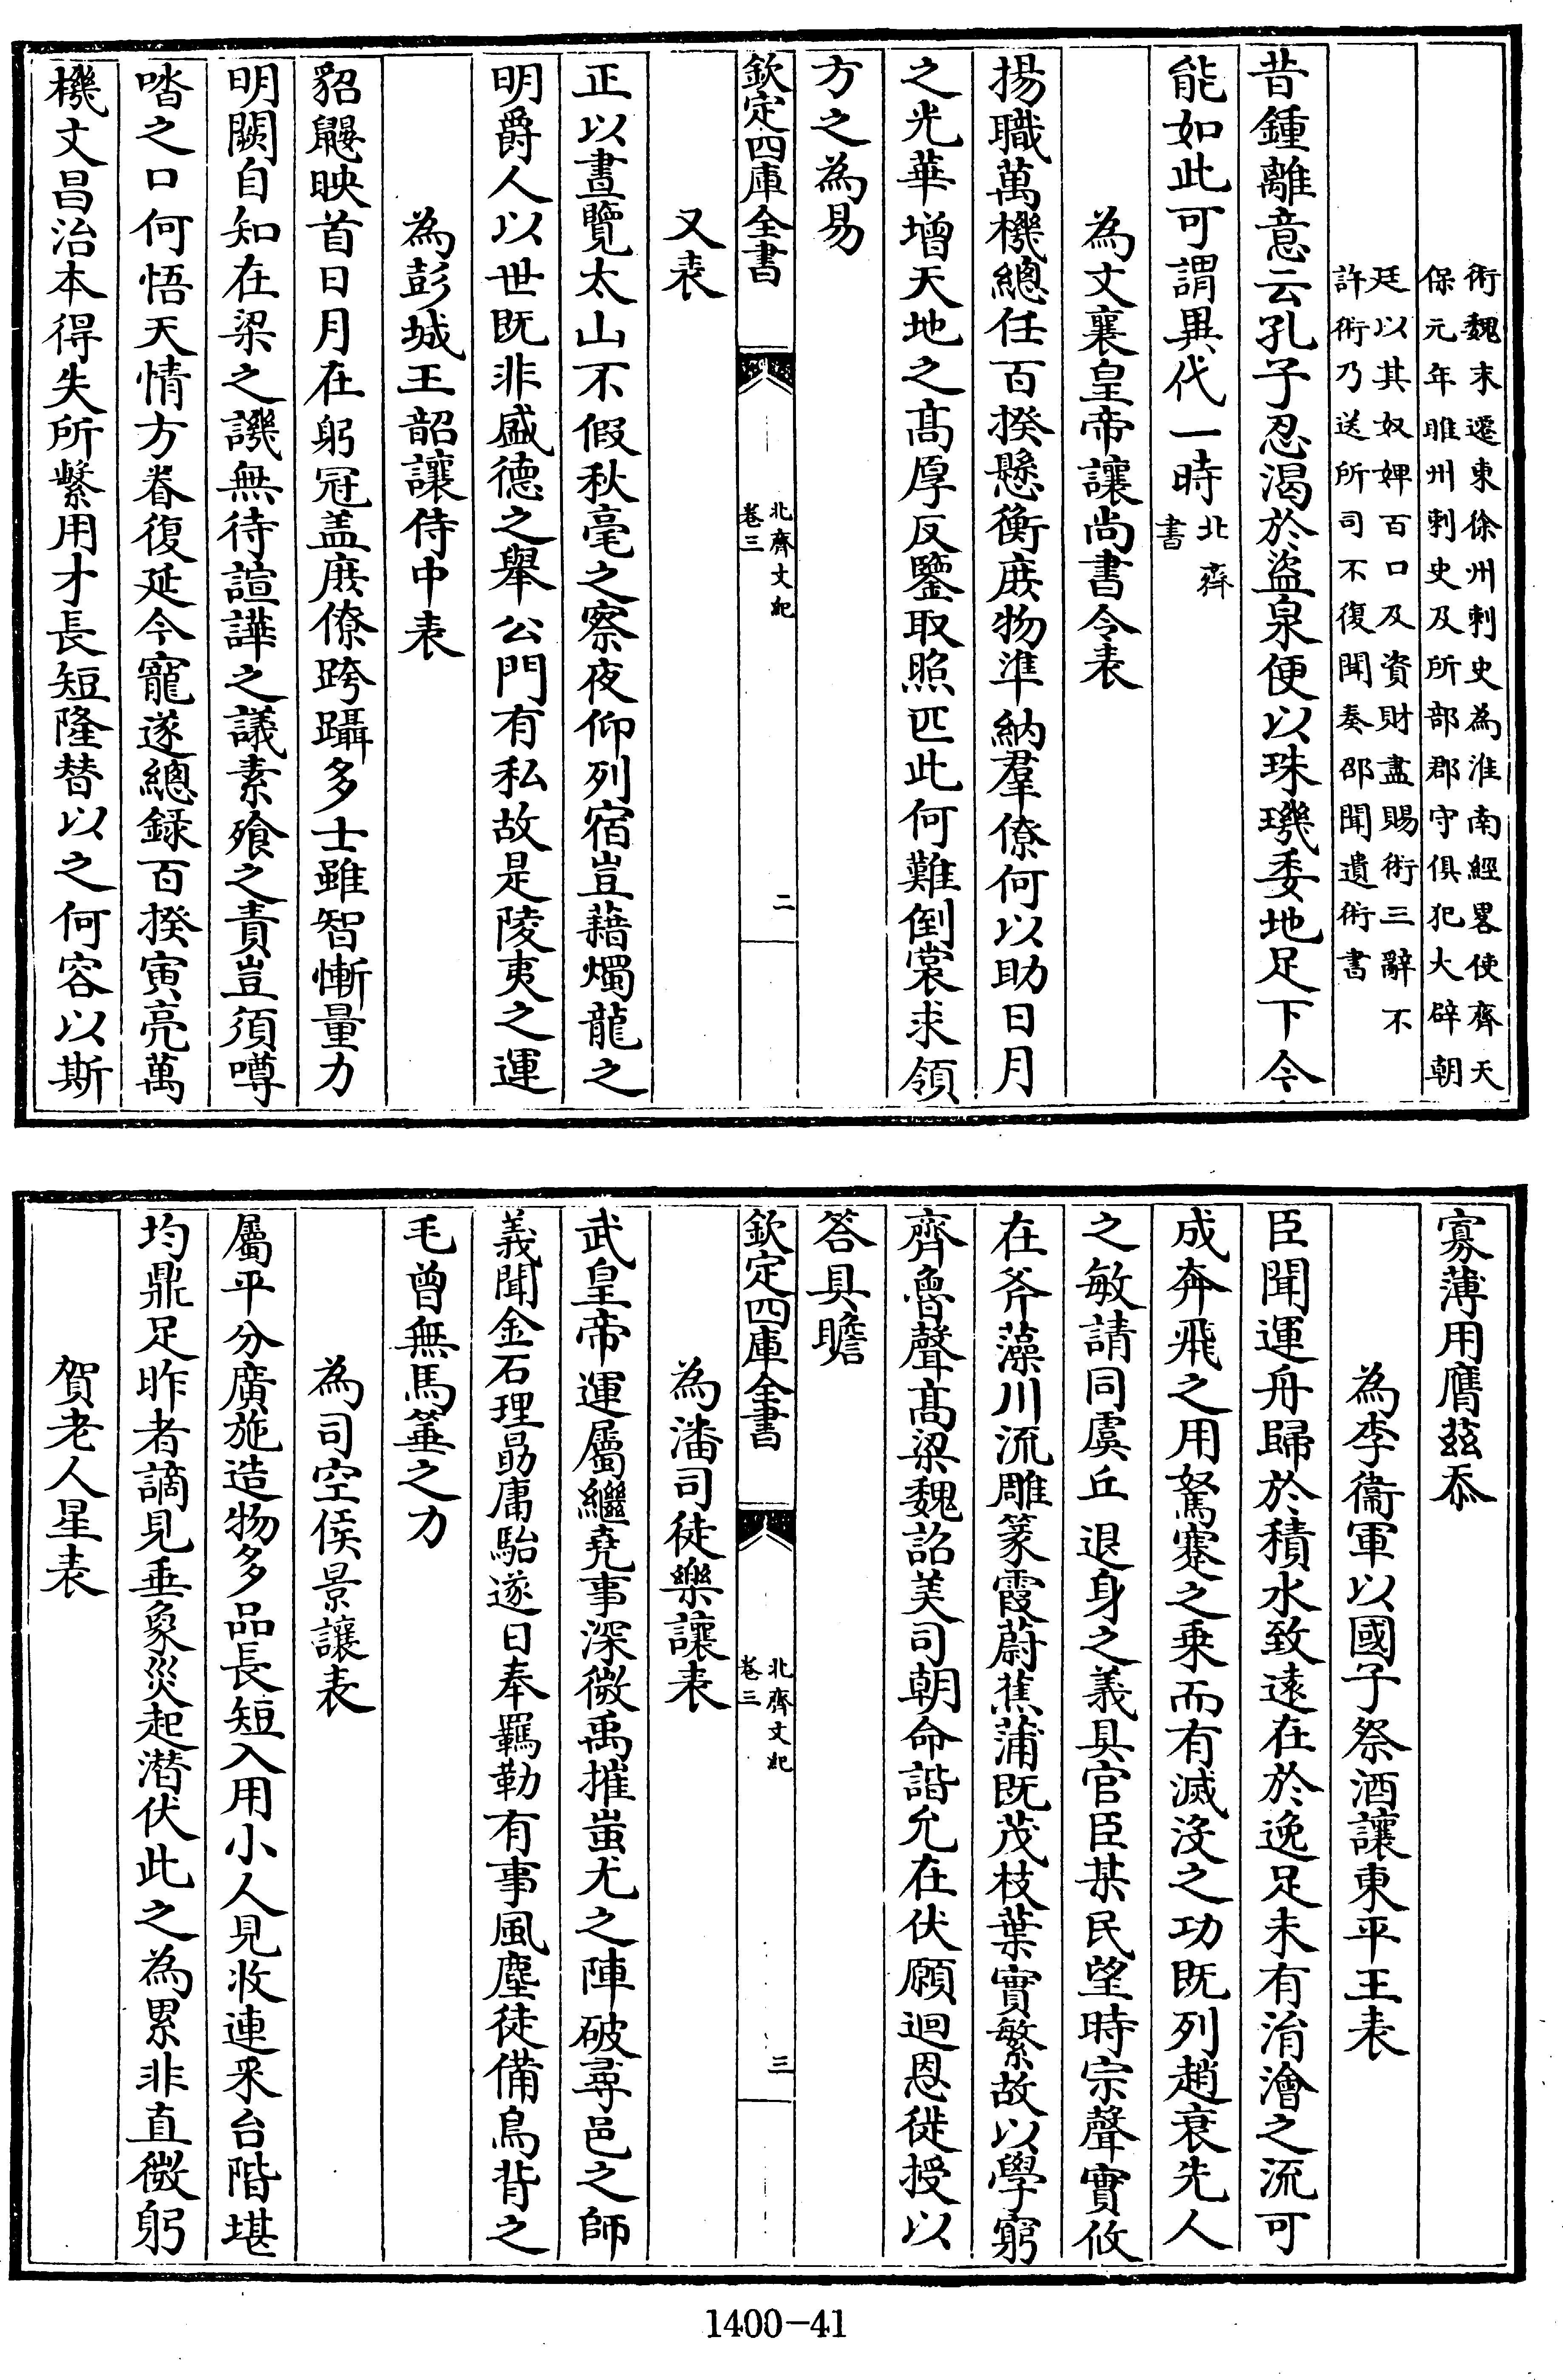 術魏末遷東徐州刺史為淮南經畧使齊天
保元年睢州刺史及所部郡守俱犯大辟朝
廷以其奴婢百口及資財盡賜術三辭不
許術乃送所司不復聞奏邵聞遺術書
昔鍾離意云孔子忍渴於盜泉便以珠璣委地足下今
能如此可謂異代一時北齊
書
為文襄皇帝讓尚書令表
揚職萬機總任百揆懸衡庶物準納羣僚何以助日月
之光華增天地之髙厚反鑒取照匹此何難倒裳求領
方之為易
欽定四庫全書
北齊文紀
卷三
二
又表
正以晝覽太山不假秋毫之察夜仰列宿豈藉燭龍之
明爵人以世既非盛德之舉公門有私故是陵夷之運
為彭城王韶讓侍中表
貂鼹映首日月在躬冠盖庶僚跨躡多士雖智慚量力
明闕自知在梁之譏無待諠譁之議素飱之責豈須噂
喒之口何悟天情方眷復延今寵遂總録百揆寅亮萬
機文昌治本得失所繫用才長短隆替以之何容以斯
寡薄用膺茲忝
為李衞軍以國子祭酒讓東平王表
臣聞運舟歸於積水致遠在於逸足未有涓澮之流可
成奔飛之用駑蹇之乗而有滅沒之功既列趙衰先人
之敏請同虞丘退身之義具官臣某民望時宗聲實攸
在斧藻川流雕篆霞蔚蕉蒲既茂枝葉實繁故以學窮
齊魯聲髙梁魏詔美司朝命諧允在伏願迴恩徙授以
答具瞻
欽定四庫全書
北齊文紀
卷三
三
為潘司徒樂讓表
武皇帝運屬繼堯事深微禹摧蚩尤之陣破尋邑之師
義聞金石理勗庸駘遂日奉羈勒有事風塵徒備鳥背之
毛曾無馬箠之力
為司空侯景讓表
屬平分廣施造物多品長短入用小人見收連釆台階堪
均鼎足昨者謫見垂象災起潜伏此之為累非直微躬
賀老人星表
1400-41